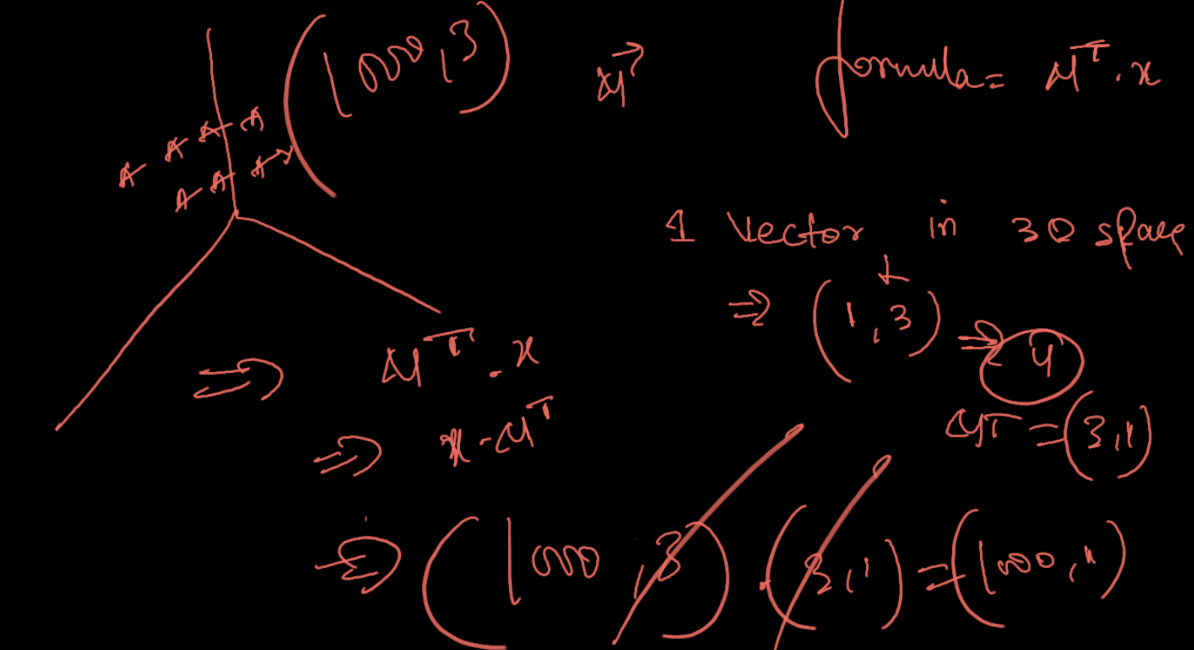 (1000, 3)
u
formula = u^T . x
1 vector in 3D space
⇒ (1, 3) ⇒ u
⇒ u^T . x
u^T = (3, 1)
⇒ x . u^T
⇒ (1000, 3) . (3, 1) = (1000, 1)